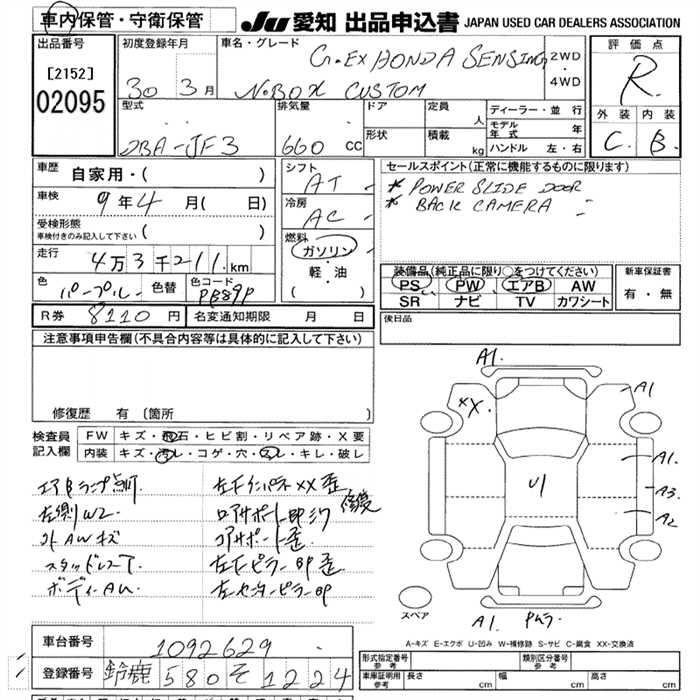 車内保管・守衛保管
JU 愛知 出品申込書 JAPAN USED CAR DEALERS ASSOCIATION
出品番号
[2152]
02095
初度登録年月
30 3月
車名・グレード
G・EX HONDA SENSING
N・BOX CUSTOM
2WD
・
4WD
評価点
R
外装 内装
C. B.
型式
DBA-JF3
排気量
660 cc
ドア
形状
定員 人
積載 kg
ディーラー・並行
モデル年式 年
ハンドル 左・右
車歴
自家用・( )
車検
9年4月( 日)
受検形態
車検付きのみ記入して下さい ( )
走行
4万3千211km
色
パープル
色替
色コード
PB89P
シフト
AT
冷房
AC
燃料
ガソリン
・
軽・油
( )
セールスポイント(正常に機能するものに限ります)
* POWER SLIDE DOOR
* BACK CAMERA
装備品(純正品に限り○をつけてください)
PS PW エアB AW
SR ナビ TV カワシート
新車保証書
有・無
R券 8110円
名変通知期限 月 日
後日品
注意事項申告欄(不具合内容等は具体的に記入して下さい)
修復歴 有〔箇所 〕
検査員
記入欄
FW キズ・飛石・ヒビ割・リペア跡・X要
内装 キズ・汚レ・コゲ・穴・スレ・キレ・破レ
エアBランプ点灯
左側W2
外AWキズ
ボディーAW
左インパネXX歪
修復
コアサポート歪
左センターピラーBP
A1.
A1
XX.
A1.
A3
A2
U
A1
スペア
A-キズ E-エクボ U-凹み W-補修跡 S-サビ C-腐食 XX-交換済
車台番号
1092629
登録番号
鈴鹿580そ1224
形式指定番号
参考
類別区分番号
参考
車庫証明用
参考
長さ cm
幅 cm
高さ cm